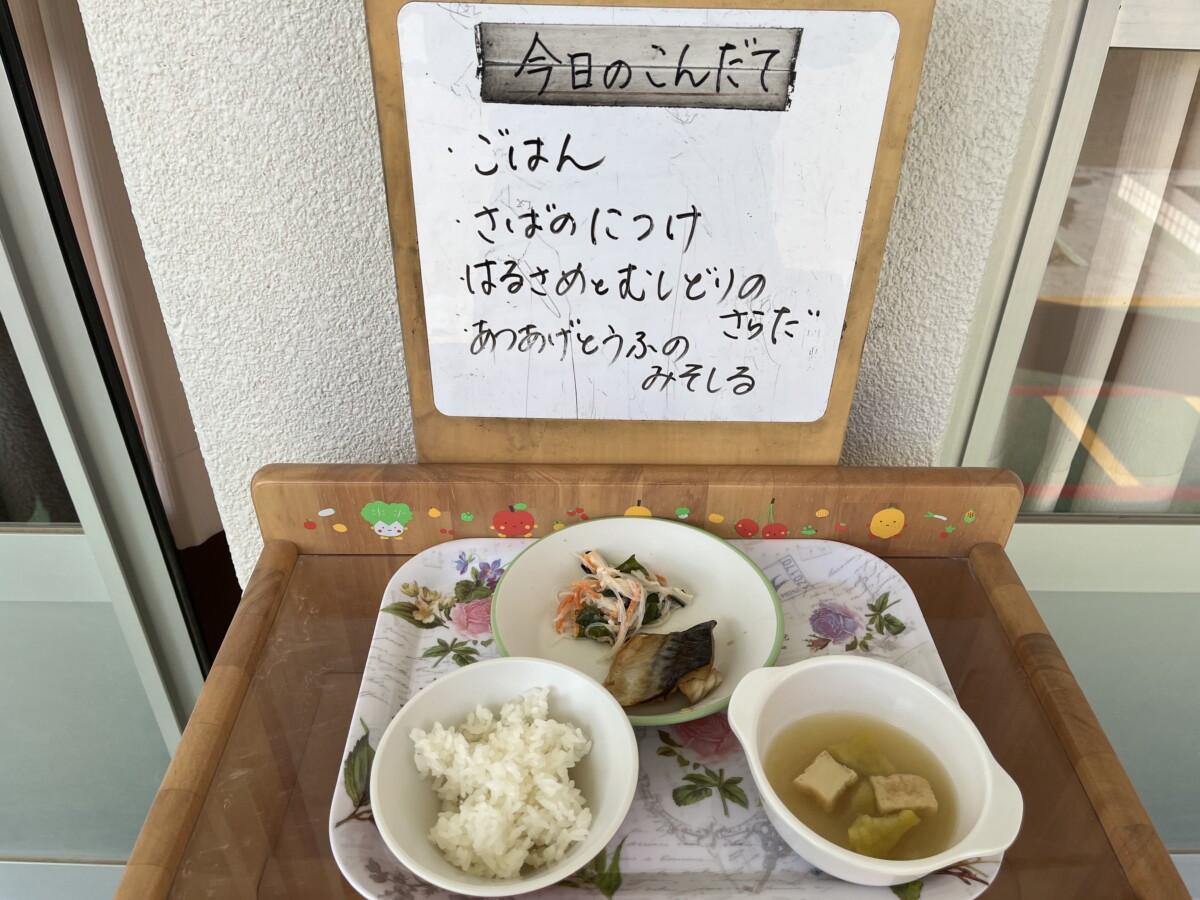 今日のこんだて
・ごはん
・さばのにつけ
・はるさめとむしどりの
さらだ
・あつあげとうふの
みそしる